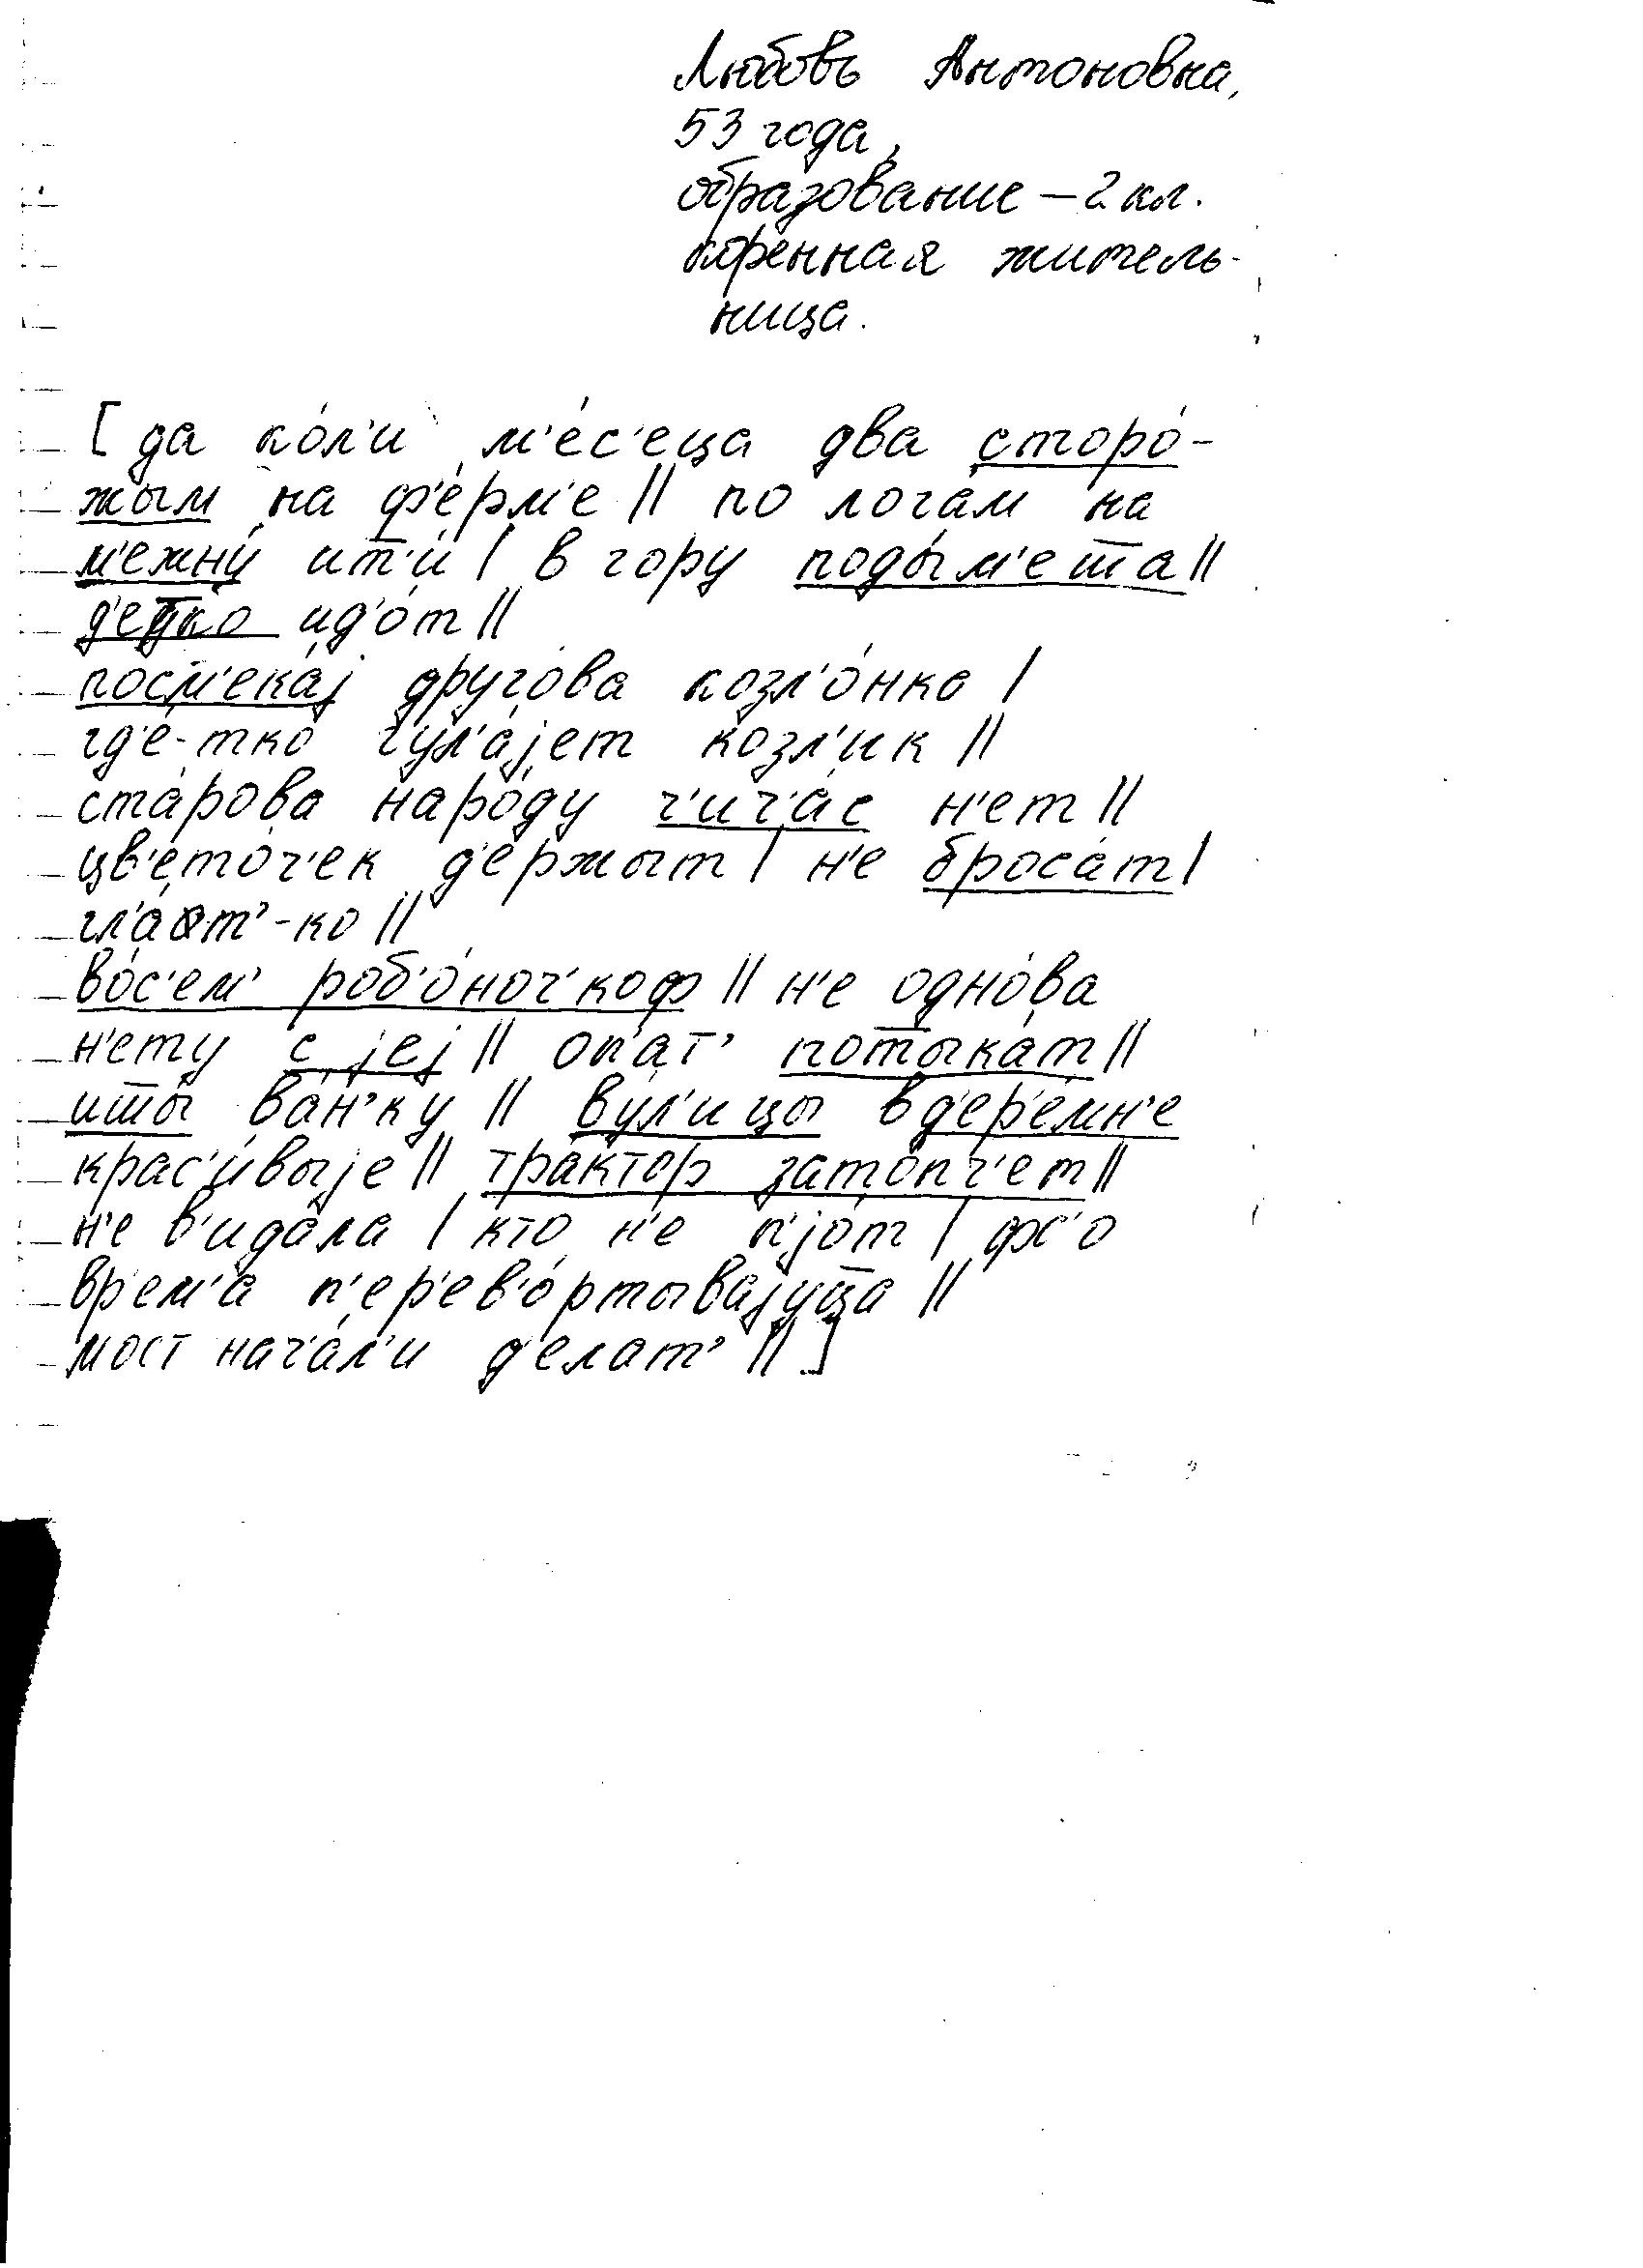 Любовь Антоновна,
53 года,
образование – 2 кл.
коренная житель-
ница.
[да ко́л'и м'е́с'еца два сторо́-
жым на ф'е́рм'е || по лога́м на
м'ежну́ ит̅'и́ | в гору поды́м'ет̅а ||
идо́т ||
посм'ека́ј друго́ва козл'о́нка |
гд'е́-тко гул'а́јет ко́зл'ик ||
ста́рова наро́ду ч'ич'а́с н'ет ||
цв'ето́ч'ек д'е́ржыт | н'е броса́т |
гл'а́т'-ко ||
во́с'ем' роб'о́ноч'коф || н'е одно́ва
н'ету с јеј || оп'ат' пот̅ыка́т ||
ит̅ы́ ва́н'ку || ву́л'ицы в д'ер'е́мн'е
крас'и́выје || тра́ктор зато́пч'ет ||
н'е в'ида́ла | кто н'е п'јот | фс'о
вр'ем'а п'ер'ев'о́ртывајуц̅а ||
мост нач'а́л'и д'елат' ||]